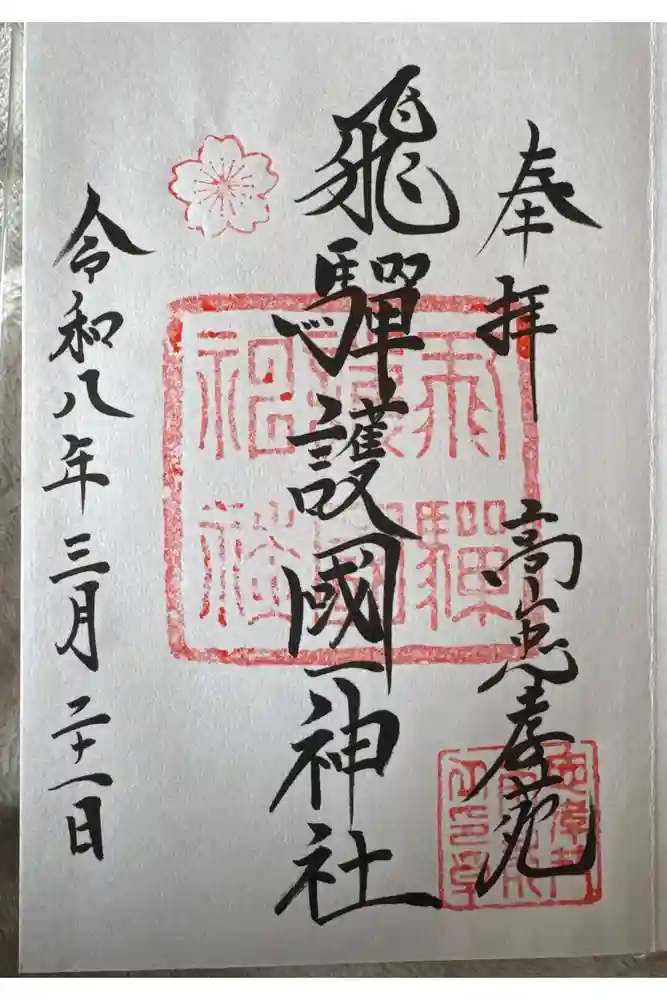 奉拝 高山忠孝苑
飛驒護國神社
令和八年三月二十一日
飛驒
護國
神社